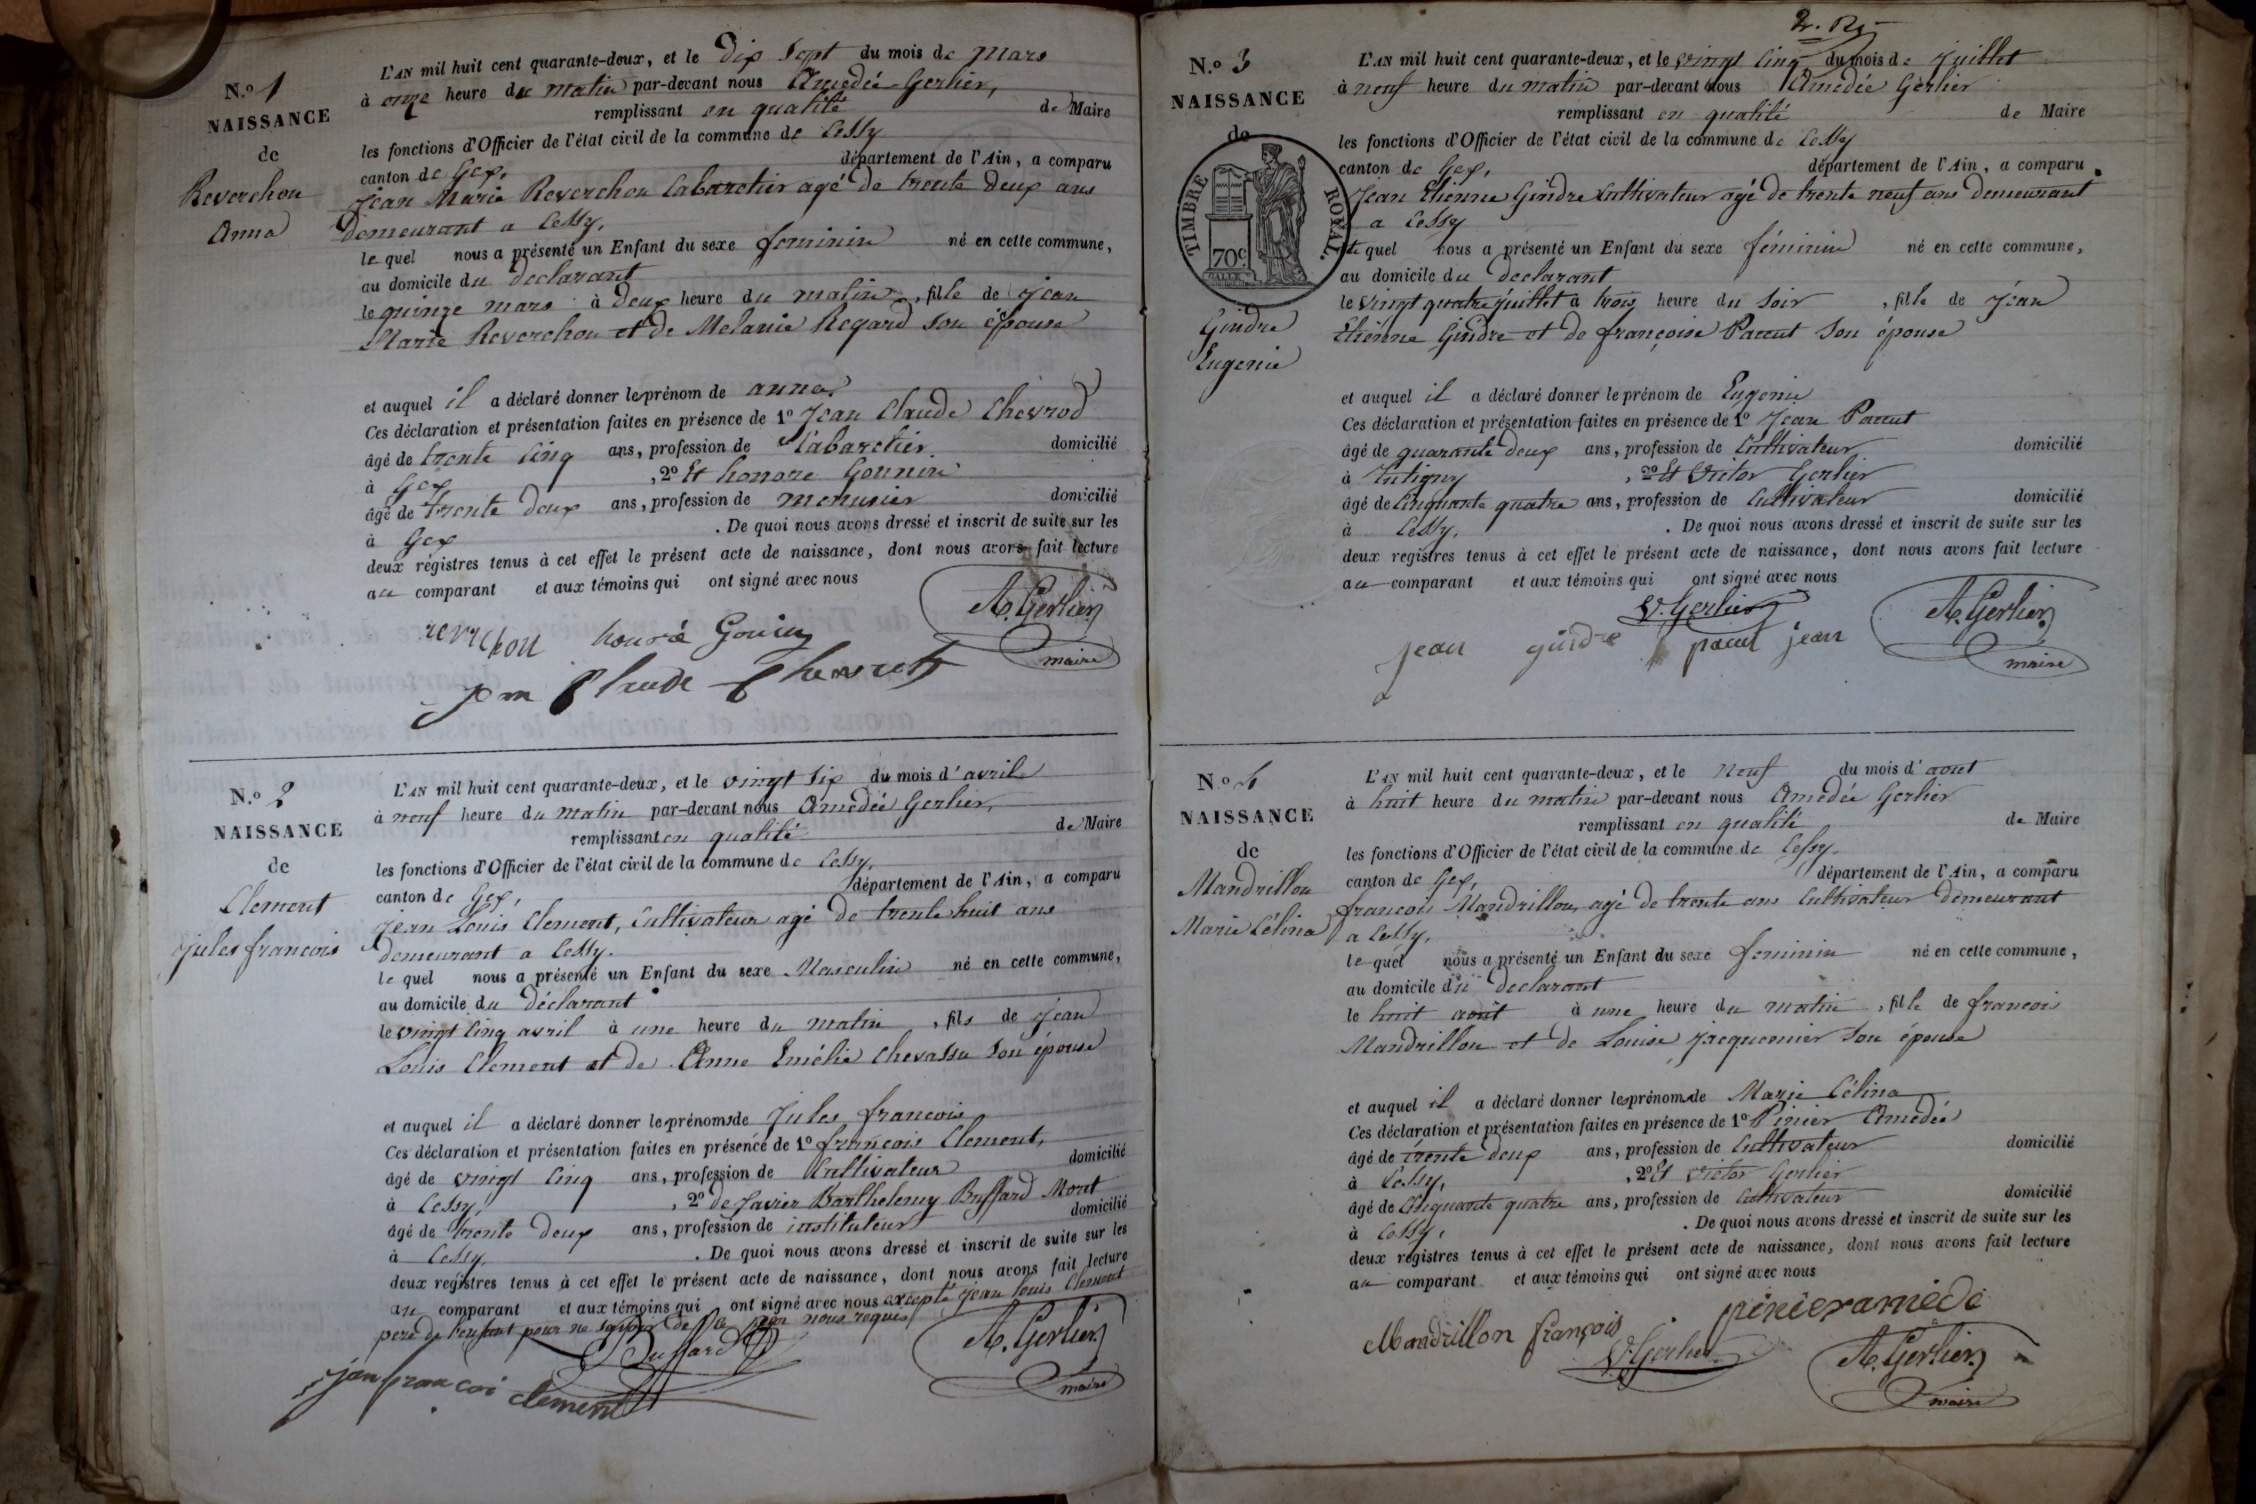 N.o 1
NAISSANCE
de
Reverchon
Anna
L'AN mil huit cent quarante-deux, et le dix sept du mois de mars
à onze heure du matin par-devant nous Amedée Gerlier,
remplissant en qualité de Maire
les fonctions d'Officier de l'état civil de la commune de Cessy
canton de Gex, département de l'Ain, a comparu
Jean Marie Reverchon Cabaretier agé de trente deux ans
demeurant a Cessy,
le quel nous a présenté un Enfant du sexe feminin né en cette commune,
au domicile du declarant
le quinze mars à deux heure du matin, fille de Jean
Marie Reverchon et de Melanie Regard son épouse
et auquel il a déclaré donner le prénom de anna
Ces déclaration et présentation faites en présence de 1o Jean Claude Chevrod
âgé de trente cinq ans, profession de Cabaretier domicilié
à Gex, 2o Et honore Gounin
âgé de trente deux ans, profession de menusier domicilié
à Gex . De quoi nous avons dressé et inscrit de suite sur les
deux régistres tenus à cet effet le présent acte de naissance, dont nous avons fait lecture
au comparant et aux témoins qui ont signé avec nous
A. Gerlier
maire
revrchon honoré
jean Claude
N.o 2
NAISSANCE
de
Clement
jules francois
L'AN mil huit cent quarante-deux, et le vingt six du mois d'avril
à neuf heure du matin par-devant nous Amedée Gerlier,
remplissant en qualité de Maire
les fonctions d'Officier de l'état civil de la commune de Cessy,
canton de Gex, département de l'Ain, a comparu
Jean Louis Clement, Cultivateur agé de trente huit ans
demeurant a Cessy.
le quel nous a présenté un Enfant du sexe Masculin né en cette commune,
au domicile du déclarant
le vingt cinq avril à une heure du matin, fils de Jean
Louis Clement et de Anne Emélie Chevassu son épouse
et auquel il a déclaré donner les prénoms de Jules francois
Ces déclaration et présentation faites en présence de 1o francois Clement,
âgé de vingt cinq ans, profession de Cultivateur domicilié
à Cessy, , 2o de Xavier Barthelemy Buffard Moret
âgé de trente deux ans, profession de instituteur domicilié
à Cessy . De quoi nous avons dressé et inscrit de suite sur les
deux registres tenus à cet effet le présent acte de naissance, dont nous avons fait lecture
au comparant et aux témoins qui ont signé avec nous excepté jean louis Clement
pere de l'enfant pour ne savoir de nous requis
Buffard
A. Gerlier
maire
jan francoi clement
N.o 3
NAISSANCE
de
TIMBRE ROYAL.
70c
Gindre
Eugenie
L'AN mil huit cent quarante-deux, et le vingt cinq du mois de Juillet
à neuf heure du matin par-devant nous Amedée Gerlier
remplissant en qualité de Maire
les fonctions d'Officier de l'état civil de la commune de Cessy
canton de Gex, département de l'Ain, a comparu
Jean Etienne Gindre Cultivateur agé de trente neuf ans demeurant
a Cessy
le quel nous a présenté un Enfant du sexe féminin né en cette commune,
au domicile du declarant
le vingt quatre juillet à trois heure du soir, fille de Jean
Etienne Gindre et de françoise Pacut son épouse
et auquel il a déclaré donner le prénom de Eugenie
Ces déclaration et présentation faites en présence de 1o Jean Pacut
âgé de quarante deux ans, profession de Cultivateur domicilié
à , 2o Et Victor Gerlier
âgé de Cinquante quatre ans, profession de Cultivateur domicilié
à Cessy, . De quoi nous avons dressé et inscrit de suite sur les
deux registres tenus à cet effet le présent acte de naissance, dont nous avons fait lecture
au comparant et aux témoins qui ont signé avec nous
V. Gerlier
A. Gerlier
maire
jean gindre pacut jean
N.o 4
NAISSANCE
de
Mandrillon
Marie Célina
L'AN mil huit cent quarante-deux, et le neuf du mois d'aout
à huit heure du matin par-devant nous Amedée Gerlier
remplissant en qualité de Maire
les fonctions d'Officier de l'état civil de la commune de Cessy.
canton de Gex, département de l'Ain, a comparu
francois Mandrillon, agé de trente ans Cultivateur demeurant
a Cessy,
le quel nous a présenté un Enfant du sexe feminin né en cette commune,
au domicile du declarant
le huit août à une heure du matin, fille de francois
Mandrillon et de Louise Jacquemier son épouse
et auquel il a déclaré donner les prénoms de Marie Célina
Ces déclaration et présentation faites en présence de 1o Pinier Amedée
âgé de trente deux ans, profession de Cultivateur domicilié
à Cessy, , 2o Et Victor Gerlier
âgé de Cinquante quatre ans, profession de Cultivateur domicilié
à Cessy, . De quoi nous avons dressé et inscrit de suite sur les
deux registres tenus à cet effet le présent acte de naissance, dont nous avons fait lecture
au comparant et aux témoins qui ont signé avec nous
Mandrillon françois pinieramédé
V. Gerlier
A. Gerlier
maire